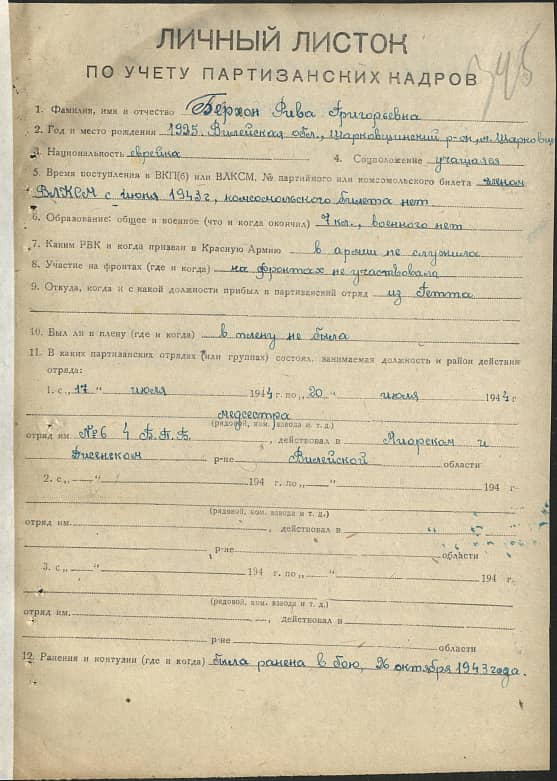 ЛИЧНЫЙ ЛИСТОК
ПО УЧЕТУ ПАРТИЗАНСКИХ КАДРОВ
1. Фамилия, имя и отчество Берхон Рива Григорьевна
2. Год и место рождения 1925. Вилейская обл., Шарковщинский р-он, м. Шарковщ
3. Национальность еврейка 4. Соцположение учащаяся
5. Время поступления в ВКП(б) или ВЛКСМ, № партийного или комсомольского билета членом
ВЛКСМ с июня 1943 г, комсомольского билета нет
6. Образование: общее и военное (что и когда окончил) 7 кл., военного нет
7. Каким РВК и когда призван в Красную Армию в армии не служила
8. Участие на фронтах (где и когда) на фронтах не участвовала
9. Откуда, когда и с какой должности прибыл в партизанский отряд из Гетта
10. Был ли в плену (где и когда) в плену не была
11. В каких партизанских отрядах (или группах) состоял, занимаемая должность и район действия
отряда:
1. с „17“ июля 1944 г. по „20“ июля 1944 г
медсестра
(рядовой, ком. взвода и т. д.)
отряд им. №6 4 Б.П.Б. , действовал в Миорском и
Дисенском р-не Вилейской области
2. с „ “ 194 г. по „ “ 194 г.
(рядовой, ком. взвода и т. д.)
отряд им. , действовал в
р-не области
3. с „ “ 194 г. по „ “ 194 г.
(рядовой, ком. взвода и т. д.)
отряд им. , действовал в
р-не области
12. Ранения и контузии (где и когда) была ранена в бою, 26 октября 1943 года.